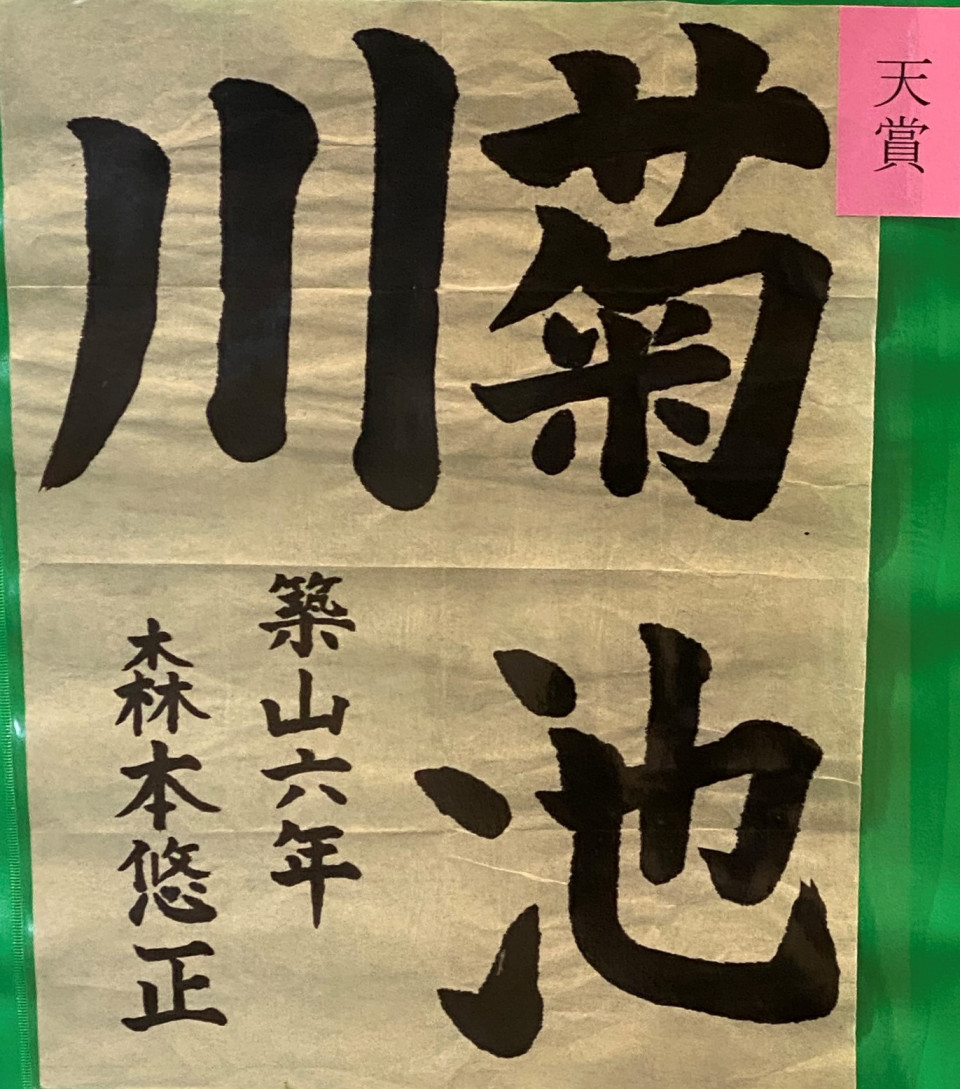 天賞
菊池
川
築山六年
森本悠正